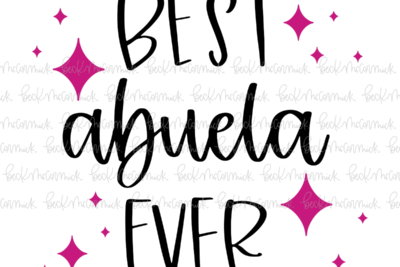 BEST
abuela
EVER